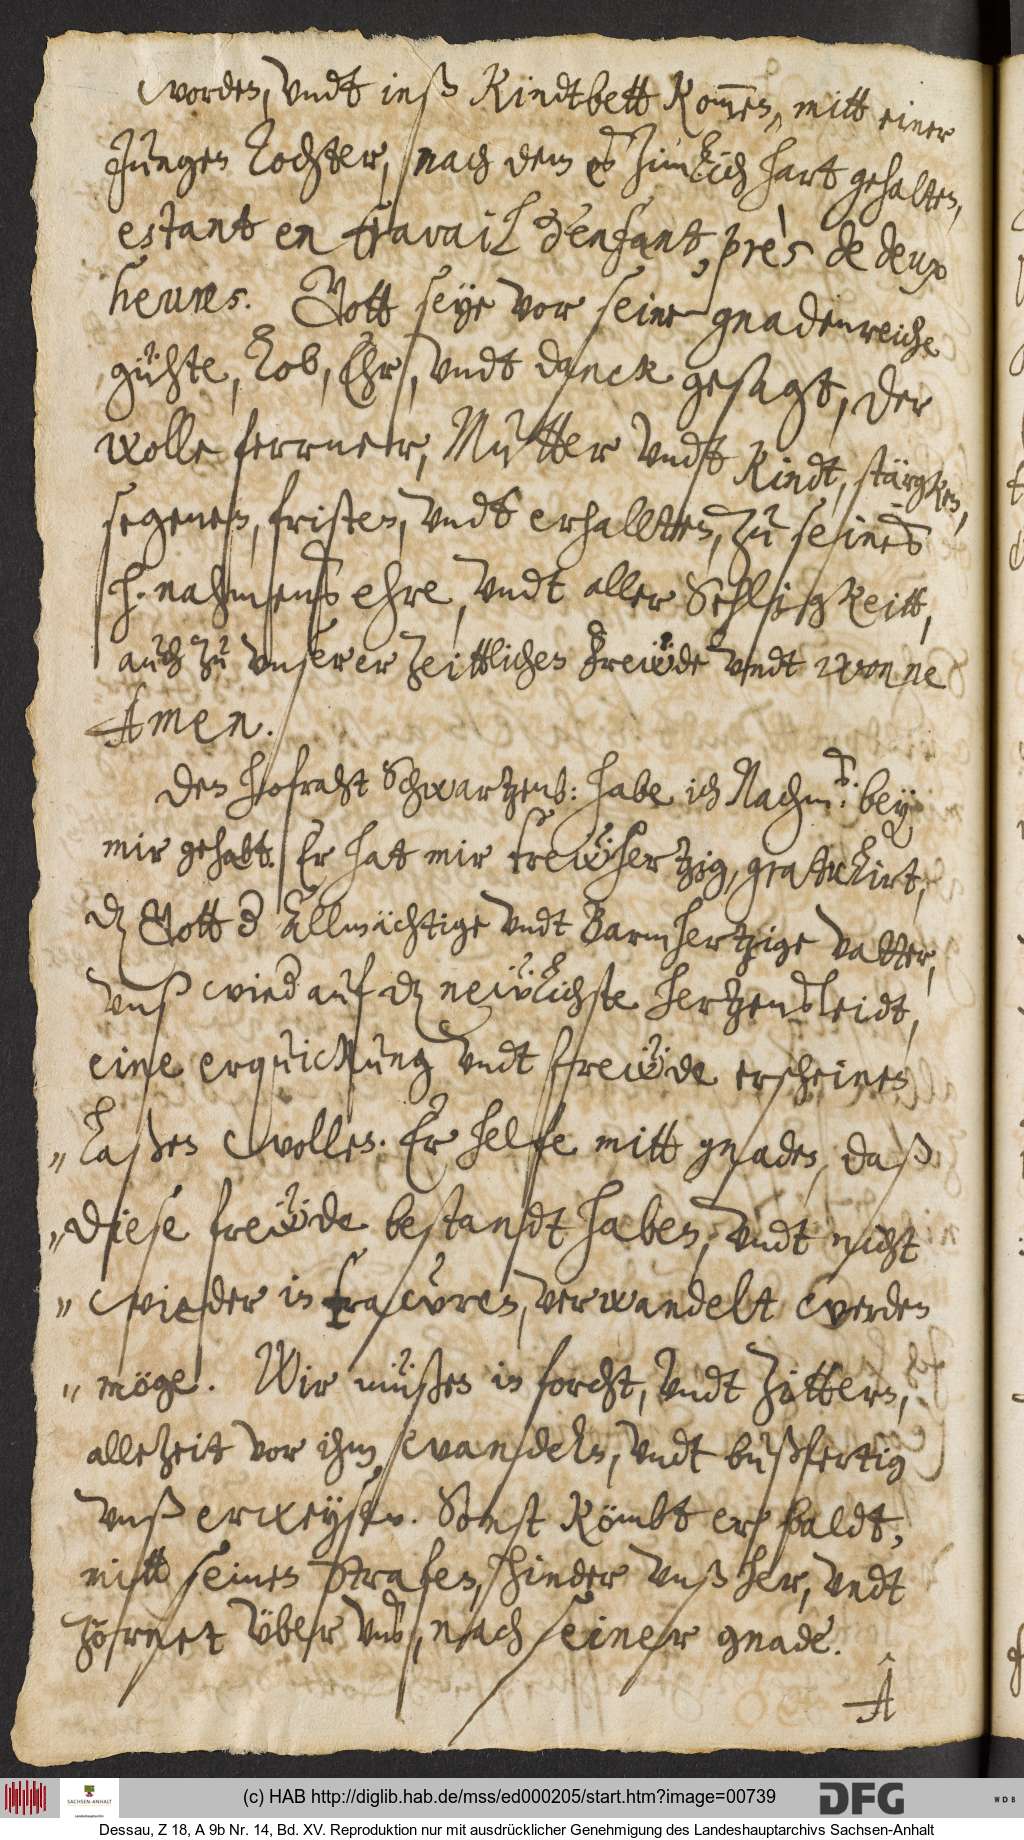 worden, vndt inß Kindtbett kommen, mitt einer
Jungen Tochter, nach dem es zimlich hart gehalten,
estant en travail d'enfant, près de deux
heures. Gott seye vor seine gnadenreiche
gühte, Lob, Ehr, vndt danck gesagt, der
wolle ferrner, Mutter vndt Kindt, stärgken,
segenen, fristen, vndt erhalltten, zu seines
h. nahmens ehre, vndt aller Sehligkeitt,
auch zu vnserer zeittlichen freẅde vndt wonne
Amen.
Den Hofraht Schwartzenb: habe ich Nachm: bey
mir gehabt. Er hat mir trewhertzig, gratulirt,
dz Gott der Allmächtige vndt Barmhertzige vatter,
vnß wieder auf dz newlichste hertzensleidt,
eine erquickung vndt freẅde erscheinen
" Laßen wollen. Er helfe mitt gnaden, daß
" diese freẅde bestandt haben, vndt nicht
" wieder in trawren, verwandelt werden
" möge. Wir müßen in forcht, vndt zittern,
allezeit vor ihm, wandeln, vndt bußfertig
vnß erweysen. Sonst kömbt er baldt,
mitt seinen Strafen, hinder vnß her, vndt
zörnet über vns, nach seiner gnade.
A
(c) HAB http://diglib.hab.de/mss/ed000205/start.htm?image=00739
SACHSEN-ANHALT
DFG
WDB
Dessau, Z 18, A 9b Nr. 14, Bd. XV. Reproduktion nur mit ausdrücklicher Genehmigung des Landeshauptarchivs Sachsen-Anhalt